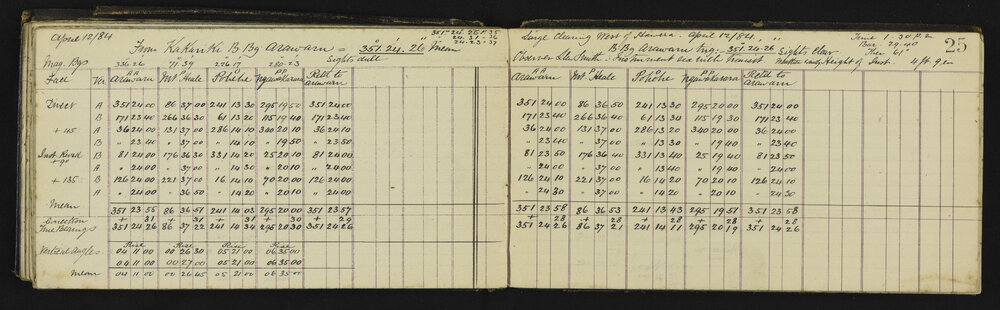 April 12/84
351° 24' 25" 35
" 24. 31 - 36
" 24 - 23 - 37
From Kakariki B Bg Arawarn = 351. 24. 26 Mean
Sights dull
Mag. Bgs 336.26 71.39 226.17 280.23
Face Ver Arawarn Mt Heale Pohehe Ngawakarara Retd to Arawarn
Direct A 351 24 00 86 37 00 241 13 30 295 19 50 351 24 00
B 171 23 40 266 36 30 61 13 20 115 19 40 171 23 40
+ 45 A 36 24 00 131 37 00 286 14 10 340 20 10 36 24 10
B " 23 40 " 37 00 " 14 10 " 19 50 " 23 50
Inst. Revsd + 90 B 81 24 00 176 36 30 331 14 20 25 20 10 81 24 00
A " 24 00 " 37 00 " 14 30 " 20 10 " 24 00
+ 135 B 126 24 00 221 37 00 16 14 10 70 20 00 126 24 00
A " 24 00 " 36 50 " 14 20 " 20 10 " 24 00
Mean 351 23 55 86 36 51 241 14 03 295 20 00 351 23 57
Correction + 31 + 31 + 31 + 30 + 29
True Bearings 351 24 26 86 37 22 241 14 34 295 20 30 351 24 26
Rise Rise Rise Rise
Vertical Angles 04 11 00 00 26 30 05 21 00 06 35 00
04 11 00 00 27 00 05 21 00 06 35 00
Mean 04 11 00 00 26 45 05 21 00 06 35 00
Large Clearing West of Hawera. April 12/84. " "
Time 1.30 P.m
Bar. 29.40
Ther 61°
25
B Bg Arawarn Trig. 351.24.26 Sights Clear
Observer Smith. Instrument sec with Height of Inst. 4 ft 9 in
Arawarn Mt Heale Pohehe Ngawakarara Retd to Arawarn
351 24 00 86 36 50 241 13 30 295 20 00 351 24 00
171 23 40 266 36 40 61 13 30 115 19 30 171 23 40
36 24 00 131 37 00 286 13 20 340 20 00 36 24 00
" 23 40 " 37 00 " 13 30 " 19 40 " 23 40
81 23 50 176 36 40 331 13 40 25 19 40 81 23 50
" 24 00 " 37 00 " 13 40 " 19 50 " 24 00
126 24 10 221 37 00 16 14 20 70 20 10 126 24 10
" 24 30 " 37 00 " 14 20 " 20 10 " 24 30
351 23 58 86 36 53 241 13 43 295 19 51 351 23 58
+ 28 + 28 + 28 + 28 + 28
351 24 26 86 37 21 241 14 11 295 20 19 351 24 26